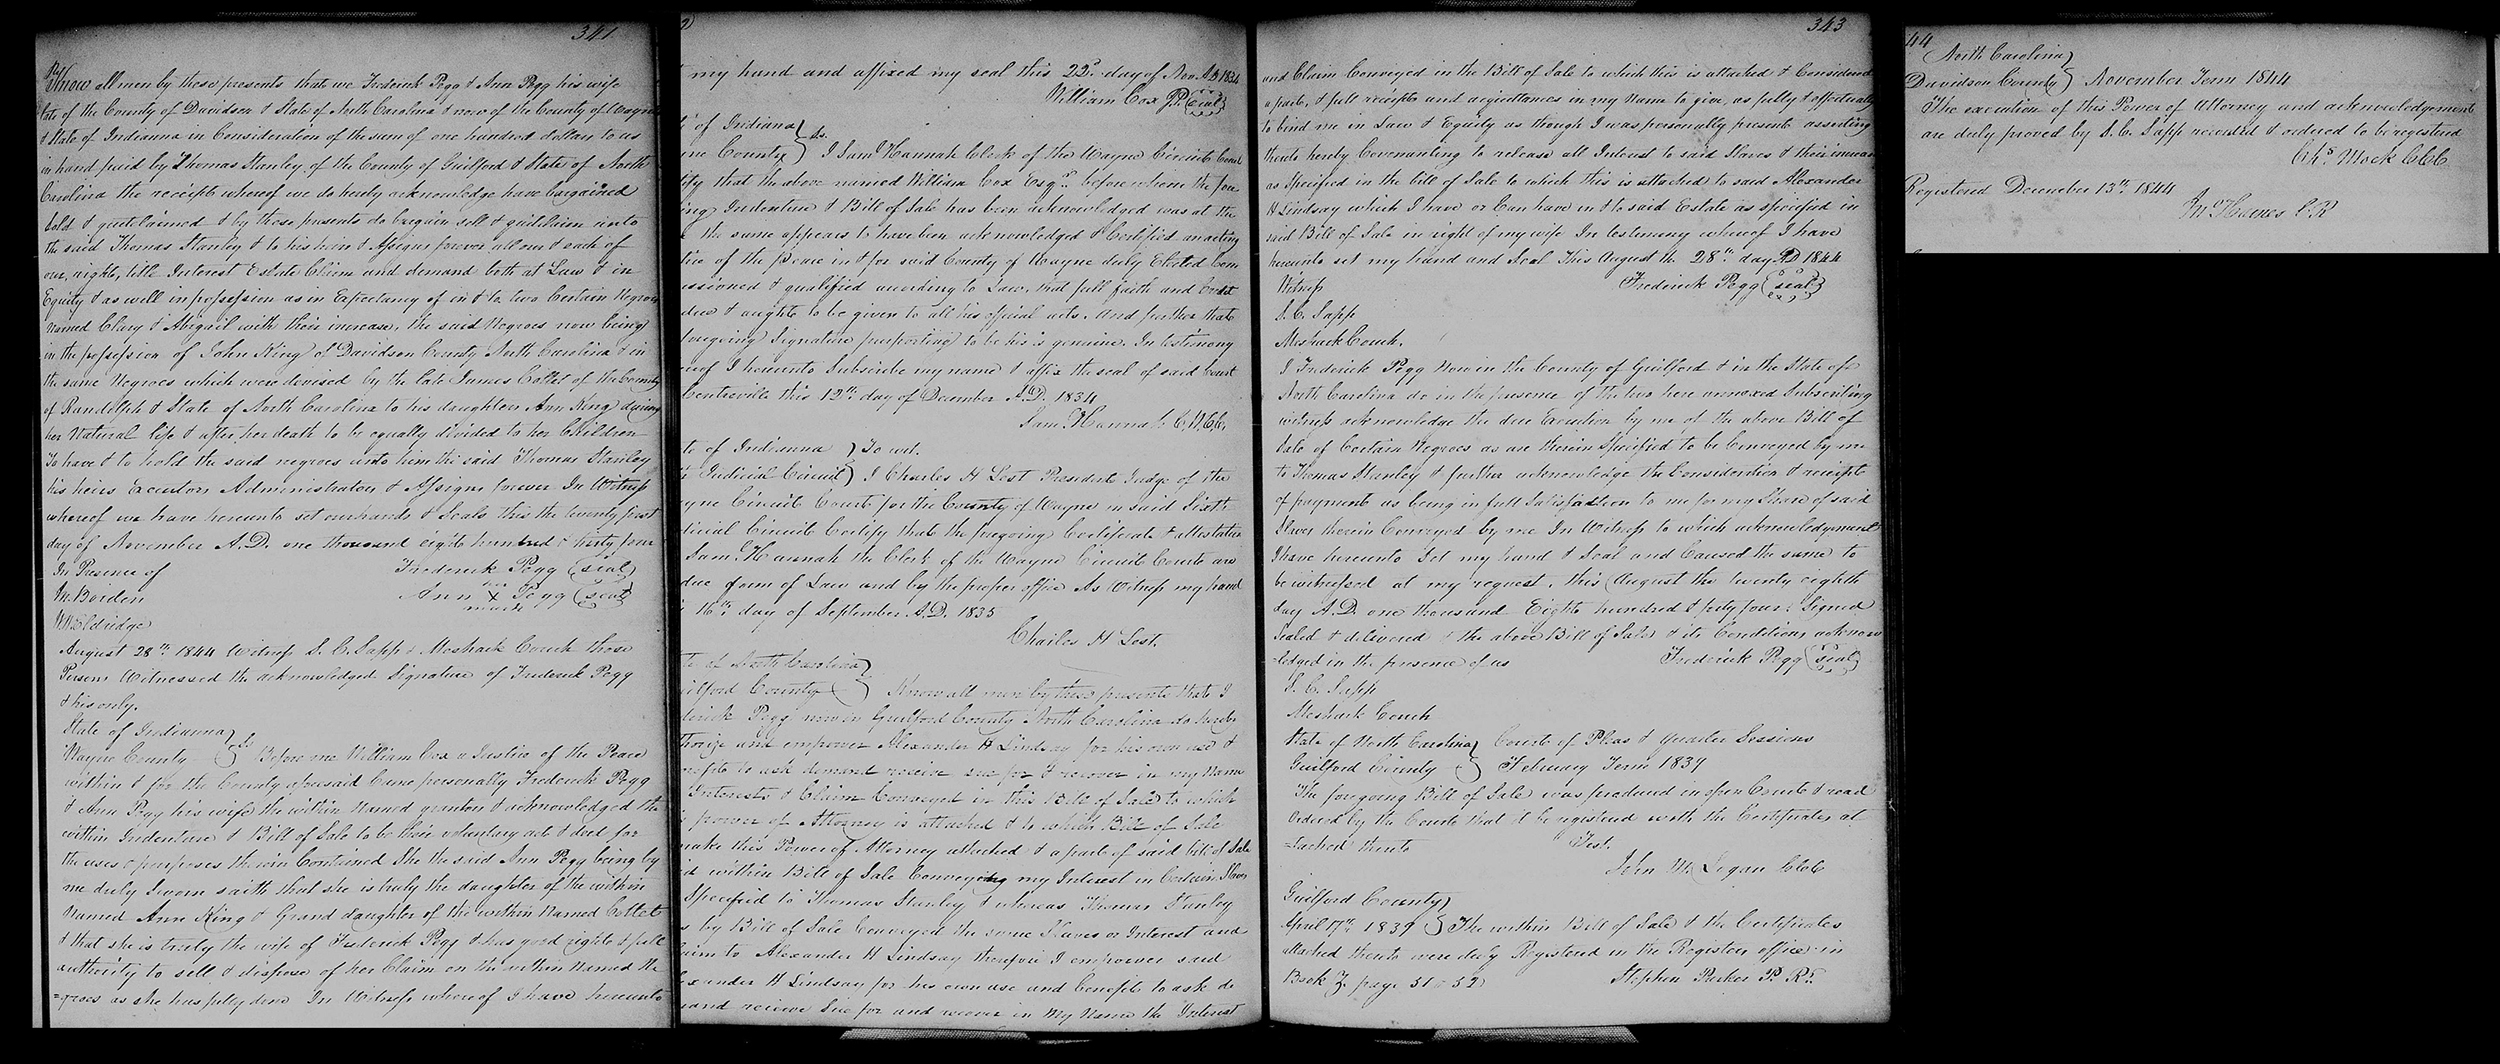 341
Know all men by these presents that we Frederick Pegg & Ann Pegg his wife
late of the County of Davidson & State of North Carolina & now of the County of Wayne
& State of Indianna in Consideration of the sum of one hundred dollars to us
in hand paid by Thomas Stanley of the County of Guilford & State of North
Carolina the receipt whereof we do hereby acknowledge have bargained
sold & quitclaimed & by these presents do bargain sell & quitclaim unto
the said Thomas Stanley & to his heirs & Assigns forever all our & each of
our, right, title Interest Estate Claim and demand both at Law & in
Equity & as well in possession as in Expectancy of in & to two Certain Negroes
named Clary & Abigail with their increase, the said Negroes now being
in the possession of John King of Davidson County North Carolina & in
the same Negroes which were devised by the late James Collet of the County
of Randolph & State of North Carolina to his daughter Ann King during
her Natural life & after her death to be equally divided to her Children
To have & to hold the said negroes unto him the said Thomas Stanley
his heirs Executors Administrators & Assigns forever In Witness
whereof we have hereunto set our hands & Seals this the twenty first
day of November A.D. one thousand eight hundred & thirty four
In Presence of Frederick Pegg (seal)
W. Borden Ann her X mark Pegg (seal)
W Eldridge
August 28th 1844 Witness S. C. Sapp & Meshack Couch those
Persons Witnessed the acknowledged Signature of Frederick Pegg
& his only.
State of Indianna
Wayne County } Ss Before me William Cox a Justice of the Peace
within & for the County aforesaid Came personally Frederick Pegg
& Ann Pegg his wife the within Named grantors & acknowledged the
within Indenture & Bill of Sale to be their voluntary act & deed for
the uses & purposes therein Contained She the said Ann Pegg being by
me duly Sworn saith that she is truly the daughter of the within
Named Ann King & Grand daughter of the within Named Collet
& that she is truly the wife of Frederick Pegg & has good right & full
authority to sell & dispose of her Claim on the within Named Ne
=groes as she has fully done In Witness whereof I have hereunto
2)
my hand and affixed my seal this 22d day of Nov. A.D 1834
William Cox J.P. (Seal)
of Indiana
ne County } Ss. I Saml Hannah Clerk of the Wayne Circuit Court
ify that the above named William Cox Esqr. before whom the fore
ing Indenture & Bill of Sale has been acknowledged was at the
the same appears to have been acknowledged & Certified an acting
tice of the peace in & for said County of Wayne duly Elected Com
issioned & qualified according to Law, that full faith and Credit
due & ought to be given to all his official acts. And further that
foregoing Signature purporting to be his is genuine. In testimony
reof I hereunto Subscribe my name & affix the seal of said Court
Centreville this 12th day of December A.D. 1834
Saml Hannah C.W.C.C.
te of Indianna } To wit.
Judicial Circuit } I Charles H Test President Judge of the
yne Circuit Court for the County of Wayne in said Sixth
dicial Circuit Certify that the foregoing Certificate & attestation
Saml Hannah the Clerk of the Wayne Circuit Court are
due form of Law and by the proper office As Witness my hand
16th day of September A.D. 1835
Charles H Test.
te of North Carolina
uilford County } Know all men by these presents that I
derick Pegg now in Guilford County North Carolina do hereby
thorize and empower Alexander H Lindsay for his own use &
nefit to ask demand receive sue for & recover in my Name
Interests & Claim Conveyed in this Bill of Sale to which
power of Attorney is attached & to which Bill of Sale
make this Power of Attorney attached & a part of said bill of Sale
id within Bill of Sale Conveying my Interest in Certain Slaves
Specified to Thomas Stanley & whereas Thomas Stanley
s by Bill of Sale Conveyed the same Slaves or Interest and
aim to Alexander H Lindsay therefore I empower said
exander H Lindsay for his own use and benefit to ask de
mand receive Sue for and recover in my Name the Interest
343
and Claim Conveyed in the Bill of Sale to which this is attached & Considered
a part, & full receipts and acquittances in my Name to give, as fully & effectually
to bind me in Law & Equity as though I was personally present assenting
thereto hereby Covenanting to release all Interest to said Slaves & their increase
as Specified in the bill of Sale to which this is attached to said Alexander
H Lindsay which I have or Can have in & to said Estate as specified in
said Bill of Sale in right of my wife In testimony whereof I have
hereunto set my hand and Seal This August the 28th day AD 1844
Witness Frederick Pegg (seal)
S. C. Sapp
Meshack Couch.
I Frederick Pegg Now in the County of Guilford & in the State of
North Carolina do in the presence of the two here annexed Subscribing
witness acknowledge the due Execution by me of the above Bill of
Sale of Certain Negroes as are therein Specified to be Conveyed by me
to Thomas Stanley & further acknowledge the Consideration & receipt
of payment as being in full Satisfaction to me for my Share of said
Slaves therein Conveyed by me In Witness to which acknowledgement
I have hereunto Set my hand & Seal and Caused the same to
be witnessed at my request, this August the twenty eighth
day A.D. one thousand Eight hundred & forty four. Signed
Sealed & delivered & the above Bill of Sale & its Conditions acknow
=ledged in the presence of us Frederick Pegg (seal)
S. C. Sapp
Meshack Couch
State of North Carolina } Court of Pleas & Quarter Sessions
Guilford County } February Term 1839
The foregoing Bill of Sale was produced in open Court & read
Ordered by the Court that it be registered with the Certificates at
=tached thereto Test.
John M. Logan CCC
Guilford County
April 17th 1839 } The within Bill of Sale & the Certificates
attached thereto were duly Registered in the Registers office in
Book Z. page 51 & 52 Stephen Parker P. Rr.
44
North Carolina
Davidson County } November Term 1844
The execution of this Power of Attorney and acknowledgement
are duly proved by S. C. Sapp recorded & ordered to be registered
Chs. Mock CCC
Registered December 13th 1844
Jno Haines P.R